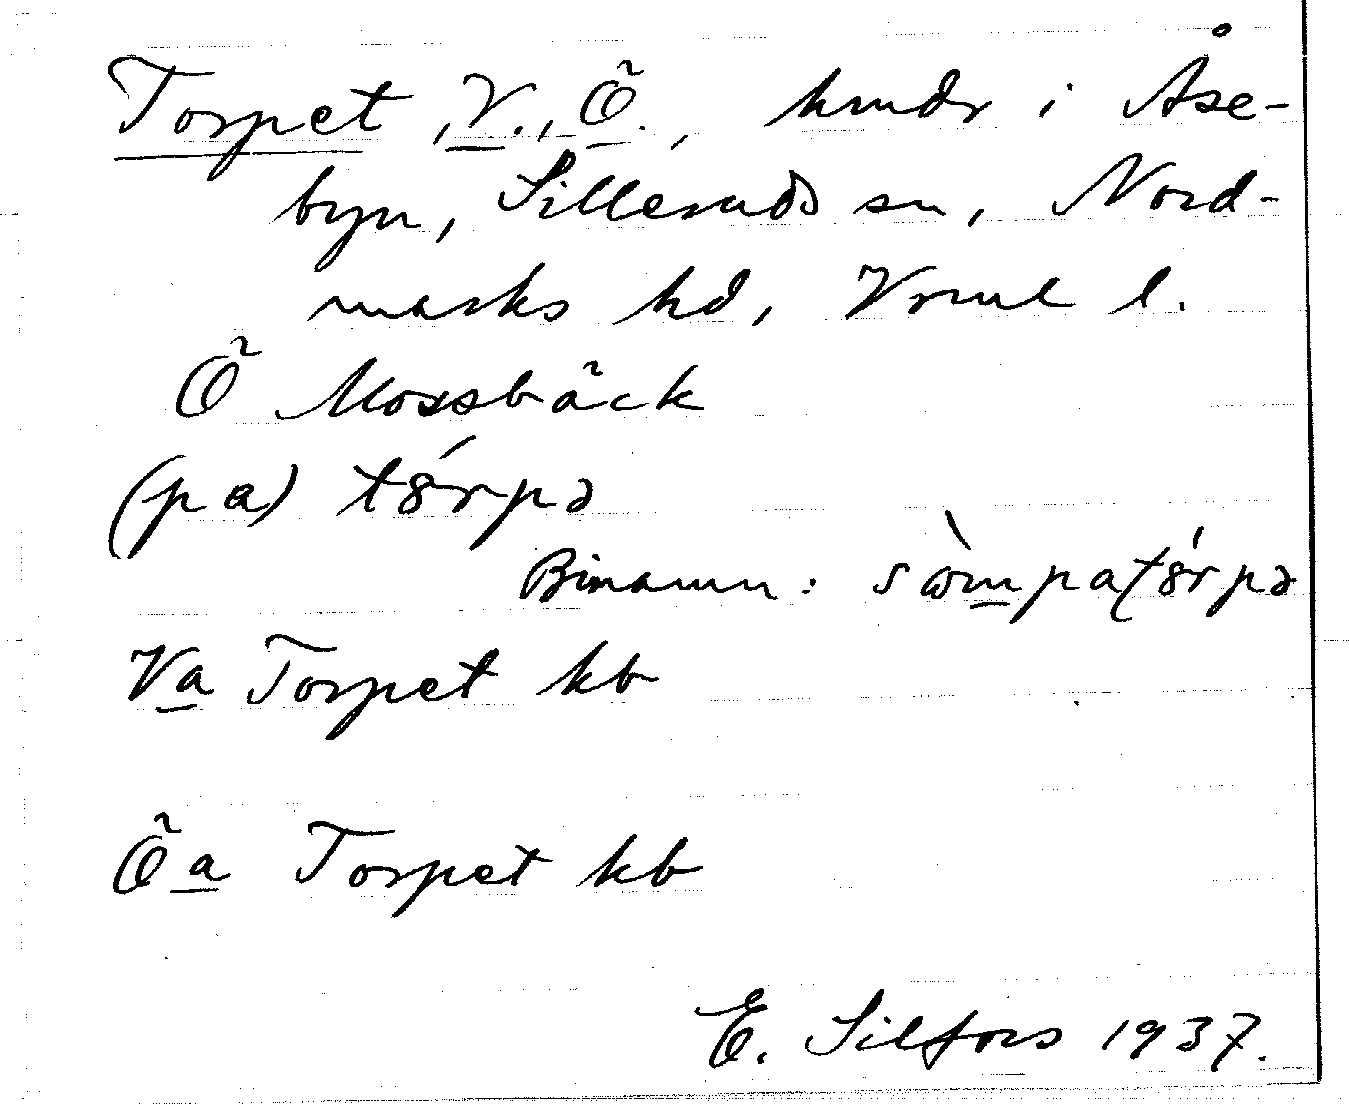 Torpet, V., Ö., hmdr i Åse-
byn, Silleruds sn, Nord-
marks hd, Vrml l.
Ö Mossbäck
(pa) tȣ́rpə
Binamn: sɷ̀mpatȣ́rpə
Va Torpet kb
Öa Torpet kb
E. Silfors 1937.